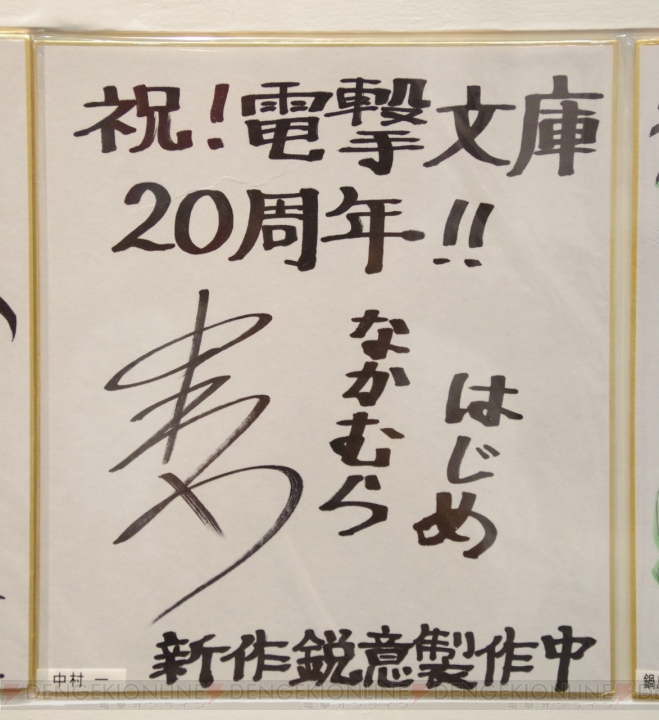 祝!電撃文庫
20周年!!
なかむら
はじめ
新作鋭意製作中
中村 一
鍋
DENGEKIONLINE DENGEKIONLINE DENGEKIONLINE
電撃オンライン 電撃オンライン 電撃オンライン